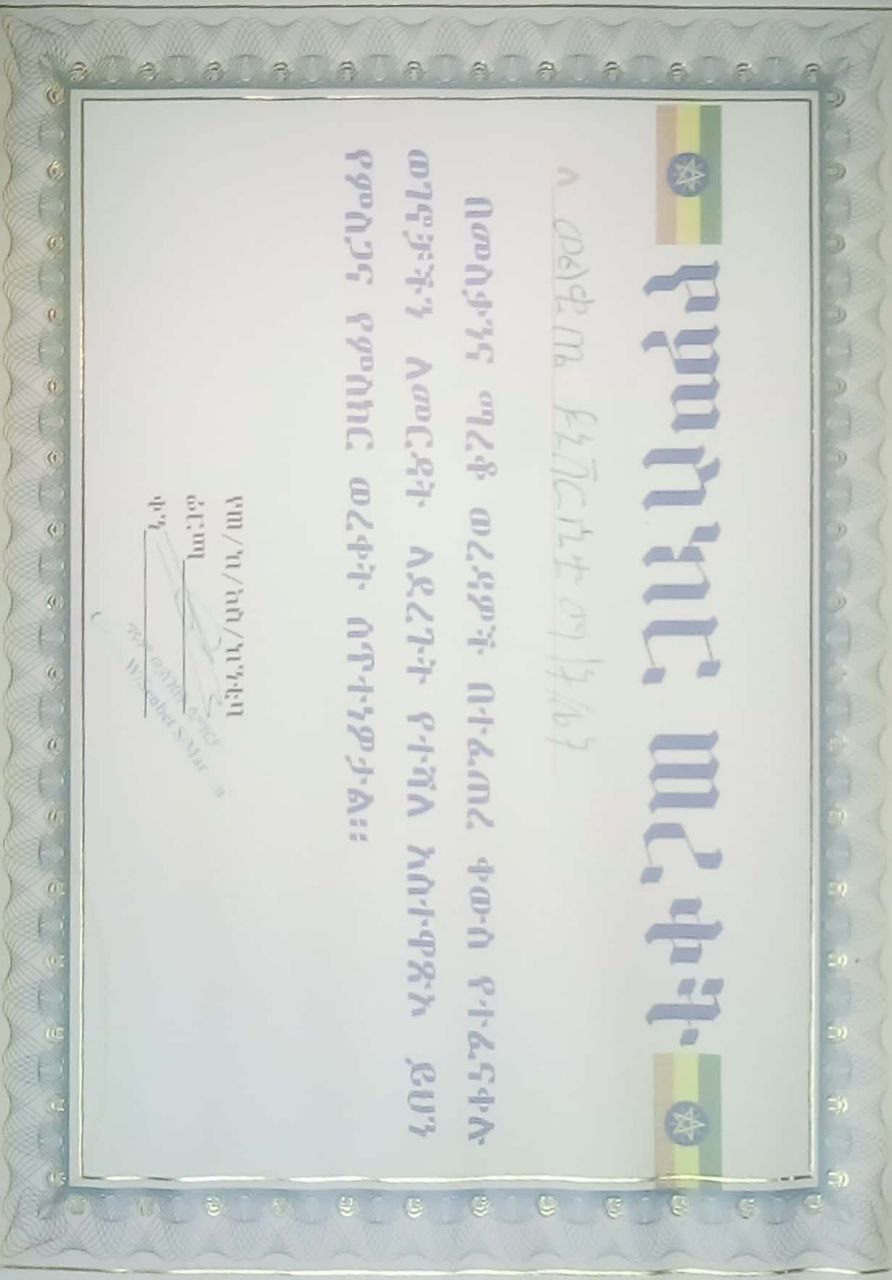 የምስክር ወረቀት
ለ ወልቂጤ ዩኒቨርሲቲ
በመስቃንና ማረቆ ወረዳዎች በተፈጠረ ቀውስ የተፈናቀሉ
ወገኖቻችን ለመርዳት ላደረጉት የተሻለ አስተዋጽኦ ይህን
የምስጋና የምስክር ወረቀት ሰጥተነዎታል፡፡
የጠ/ከ/አስ/ከንቲባ
ፊርማ
ቀን